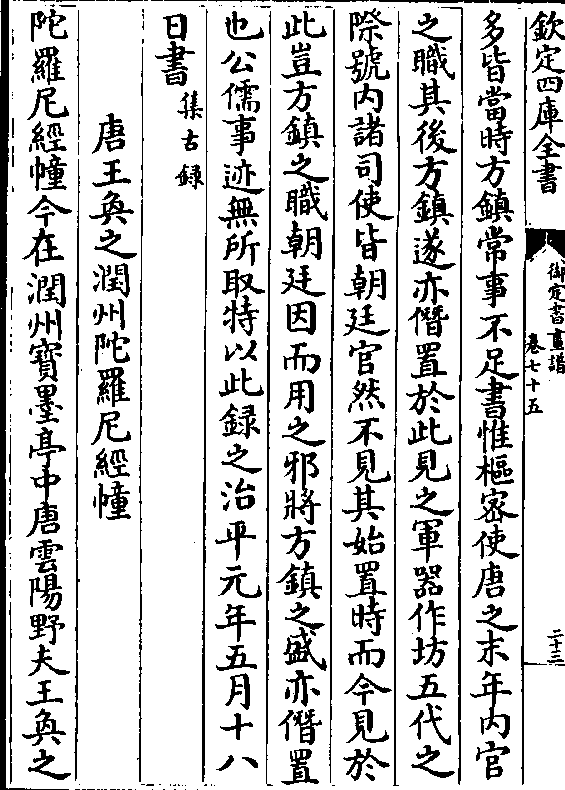 欽定四庫全書
御定書畫譜
卷七十五
二十三
多皆當時方鎮常事不足書惟樞密使唐之末年内官
之職其後方鎮遂亦僭置於此見之軍器作坊五代之
際號内諸司使皆朝廷官然不見其始置時而今見於
此豈方鎮之職朝廷因而用之邪將方鎮之盛亦僭置
也公儒事迹無所取特以此録之治平元年五月十八
日書集古録
唐王奐之潤州陀羅尼經幢
陀羅尼經幢今在潤州寶墨亭中唐雲陽野夫王奐之